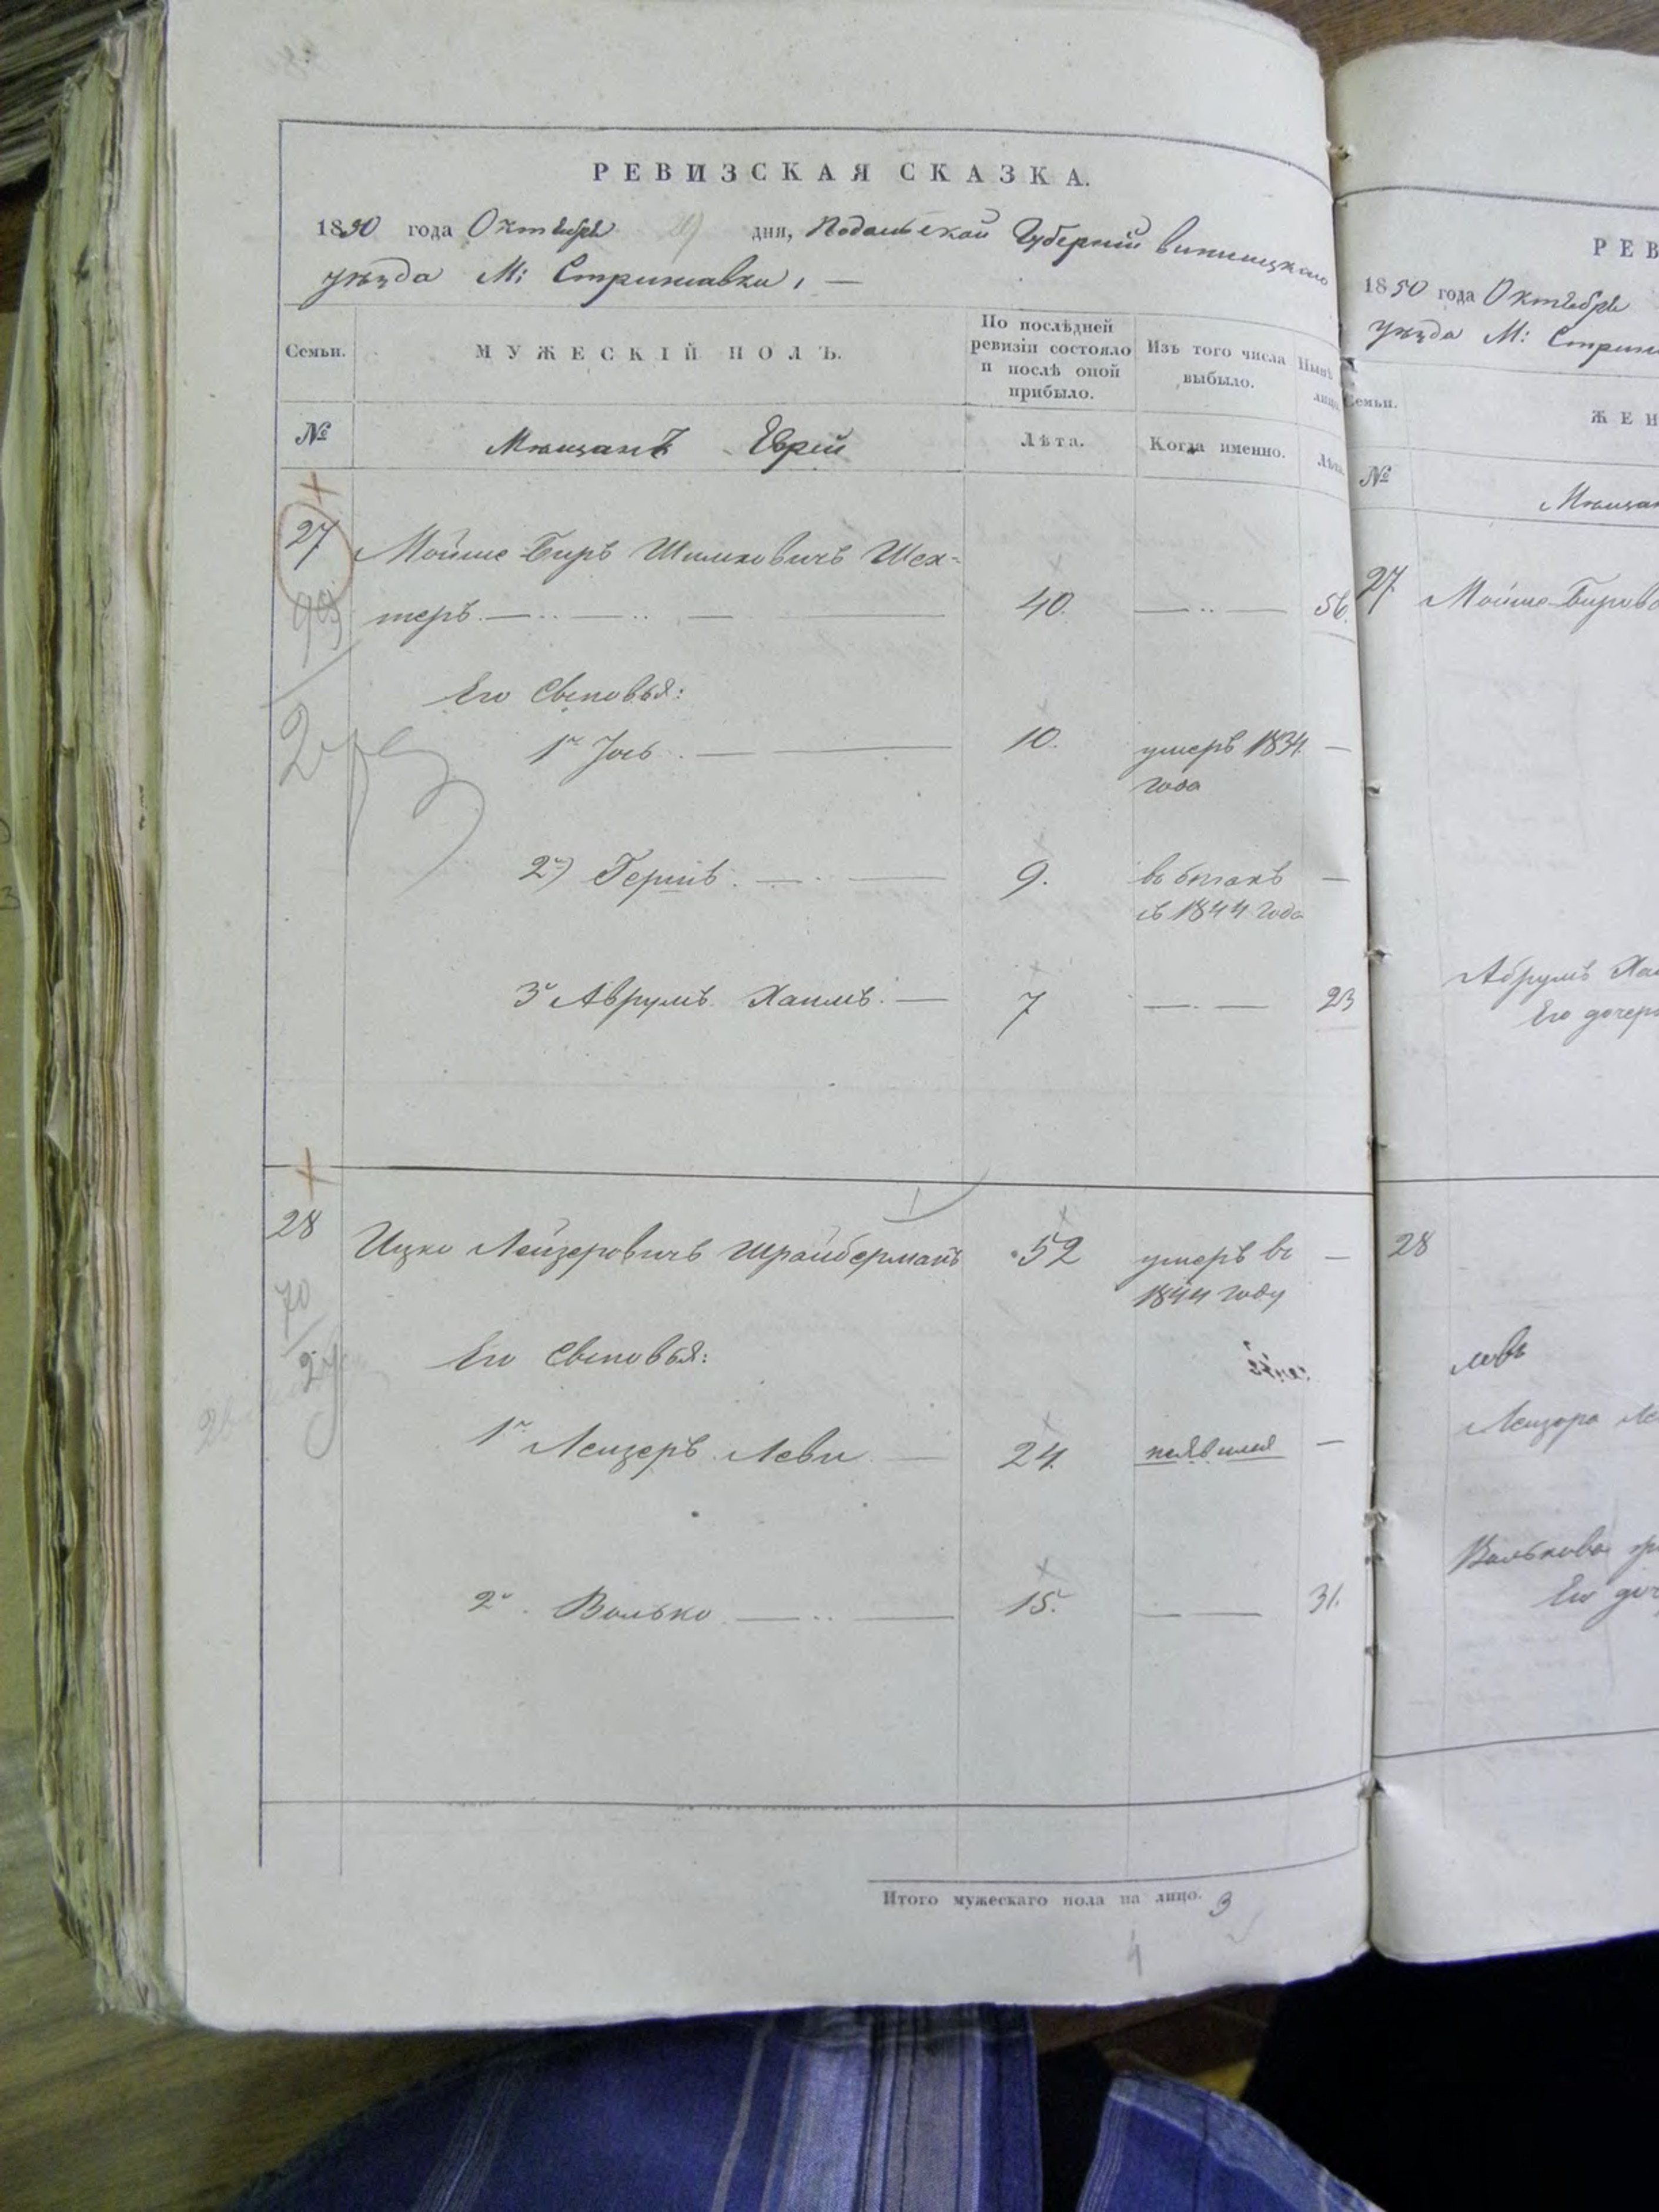 РЕВИЗСКАЯ СКАЗКА.
1850 года Октября дня, Подольской Губерніи Винницкаго
уѣзда М: Стрижавки, —
Семьи.
МУЖЕСКІЙ ПОЛЪ.
По послѣдней
ревизіи состояло
и послѣ оной
прибыло.
Изъ того числа
выбыло.
Нынѣ
лицо.
№
Мѣщанъ Еврей
Лѣта.
Когда именно.
Лѣта.
27
Мойше-Беръ Шимковичъ Шех-
теръ — 40. — 56.
Его Сыновья:
1й Іось — 10. умеръ 1834 —
года
2й) Гершъ — 9. въ бѣгахъ —
съ 1844 года
3й Аврумъ Хаимъ — 7 — 23
28 Ицко Лейзеровичъ Шрайберманъ 52 умеръ въ —
1844 году
70
Его Сыновья:
1й Лейзеръ Леви — 24. —
2й Волько — 15. — 31.
Итого мужескаго пола на лицо. 3
4
РЕВ
1850 года Октября
уѣзда М:
Семьи.
ЖЕН
№
27. Мойше-Беров
Аврумъ Ха
Его дочер
28
Лейзера Ле
Волькова
Его доч